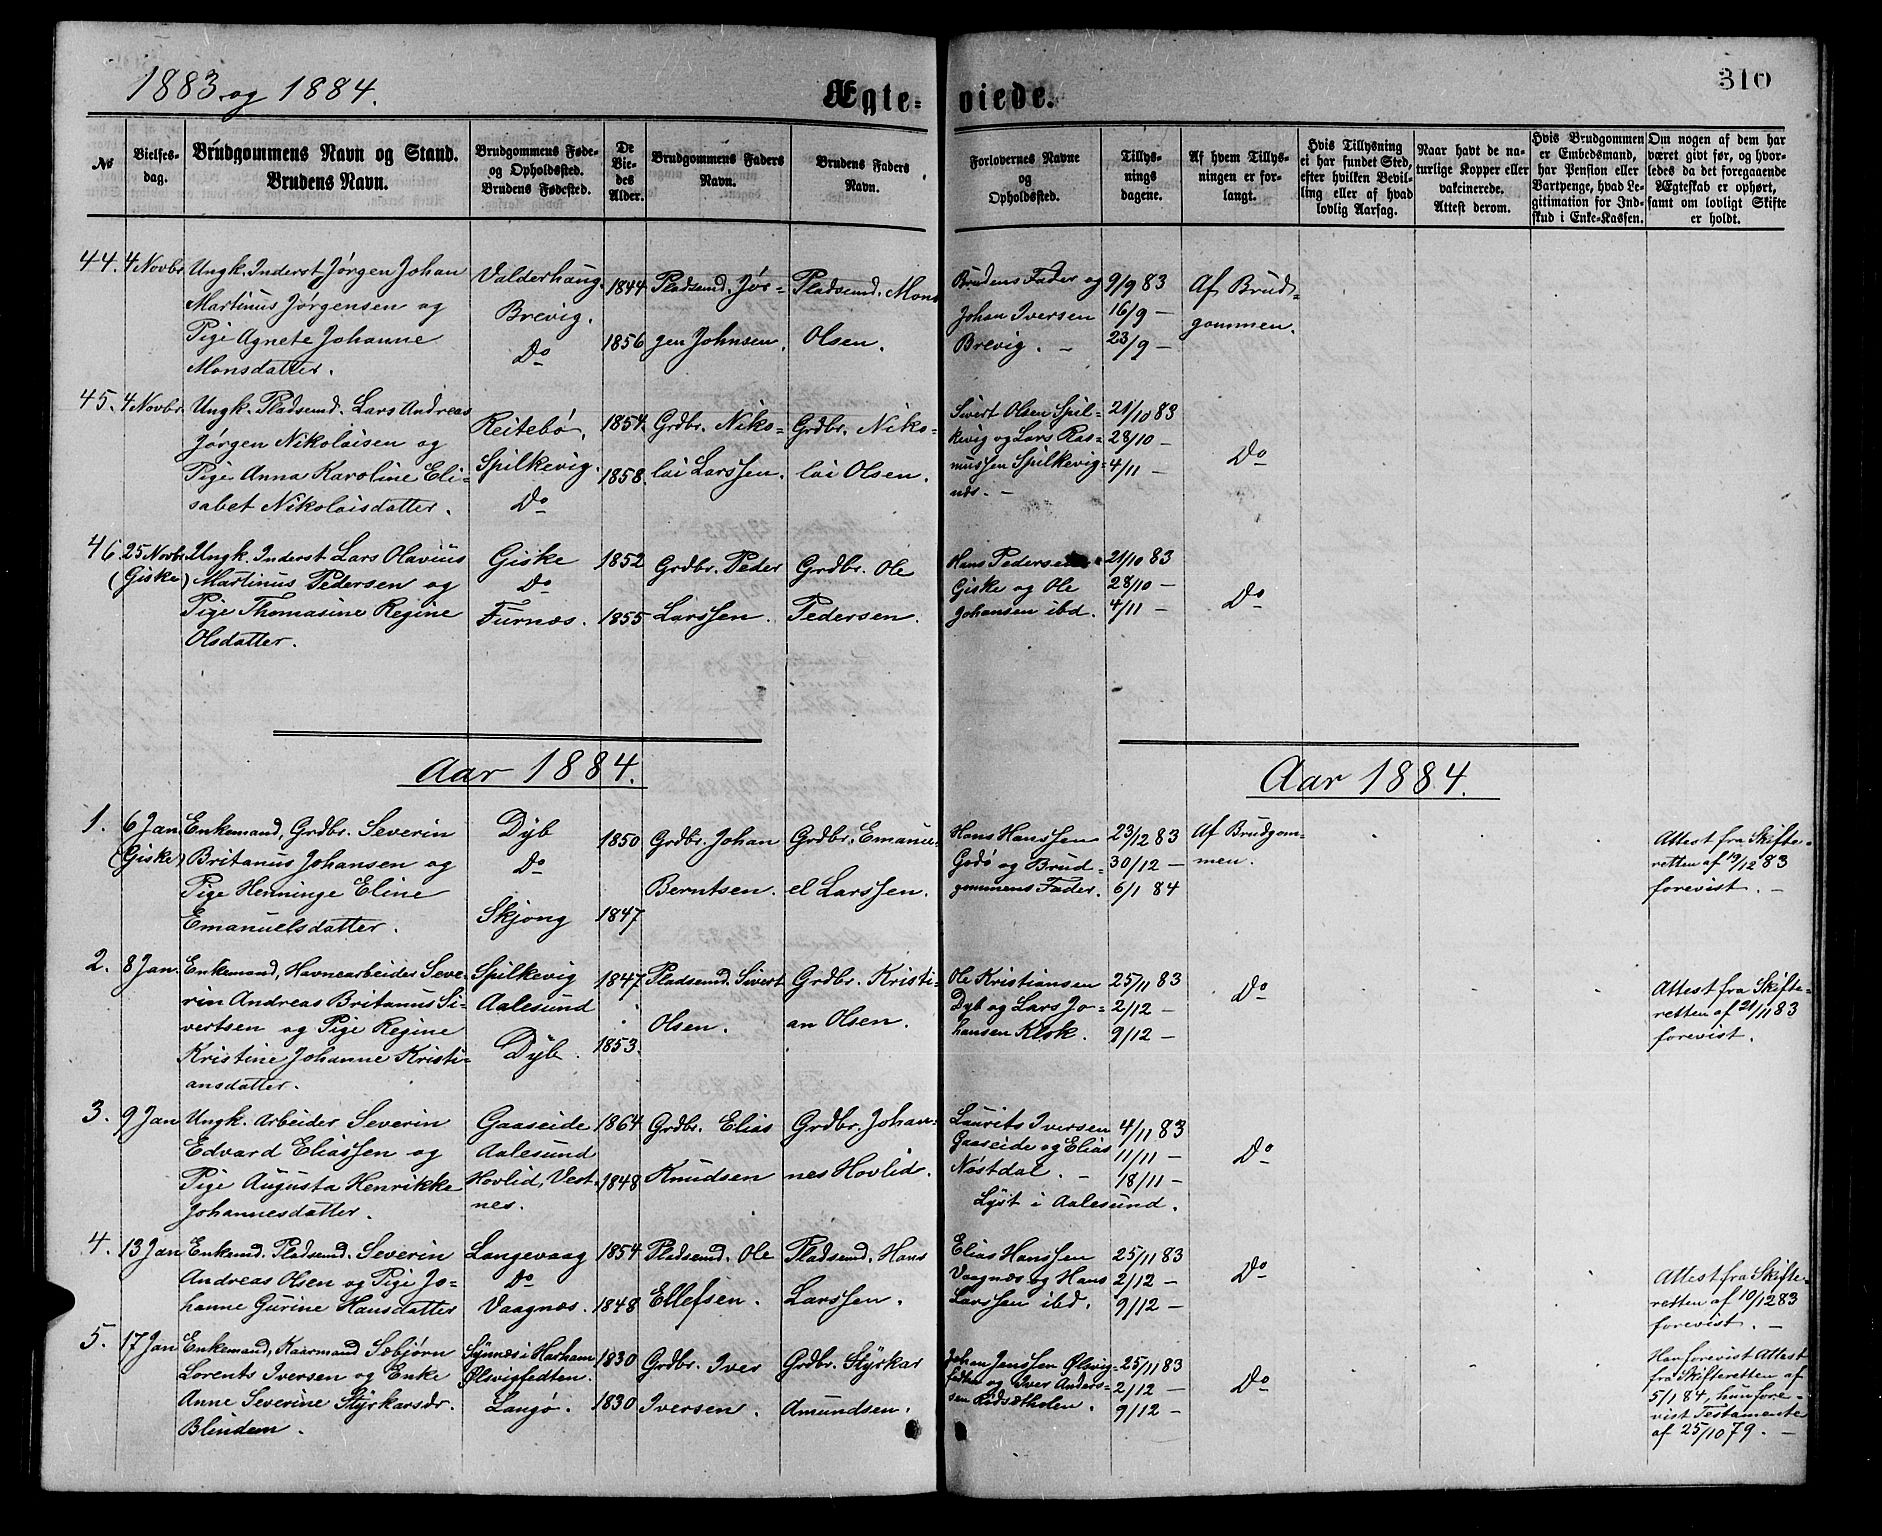 1883 og 1884.
Ægte-
viede.
310
No
Vielses-
dag.
Brudgommens Navn og Stand.
Brudens Navn.
Brudgommens Føde-
og Opholdssted.
Brudens Fødested.
De
Vie-
des
Alder.
Brudgommens Faders
Navn.
Brudens Faders
Navn.
Forlovernes Navne
og
Opholdssted.
Tillys-
nings
dagene.
Af hvem Tillys-
ningen er for-
langt.
Hvis Tillysning
ei har fundet Sted,
efter hvilken Bevil-
ling eller af hvad
lovlig Aarsag.
Naar havt de na-
turlige Kopper eller
vakcinerede.
Attest derom.
Hvis Brudgommen
er Embedsmand,
har Pension eller
Vartpenge, hvad Le-
gitimation for Ind-
skud i Enke-Kassen.
Om nogen af dem har
været givt før, og hvor-
ledes da det foregaaende
Ægteskab er ophørt,
samt om lovligt Skifte
er holdt.
44.
4 Novbr
Ungk. Inderst Jørgen Johan
Martinus Jørgensen og
Pige Agnete Johanne
Monsdatter.
Valderhaug.
Brevig.
Do
1844
1856
Pladsemd. Jør-
gen Johnsen.
Pladsemd. Mons
Olsen.
Brudens Fader og
Johan Iversen
Brevig. -
9/9 83
16/9 -
23/9 -
Af Brud-
gommen.
45.
4 Novbr.
Ungk. Pladsemd. Lars Andreas
Jørgen Nikolaisen og
Pige Anna Karoline Eli-
sabet Nikolaisdatter.
Reitebø.
Spilkevig.
Do
1854.
1858.
Grdbr. Niko-
lai Larssen.
Grdbr. Niko-
lai Olsen.
Sivert Olsen Spil-
kevig og Lars Ras-
mussen Spilkevig-
nds. -
21/10 83
28/10 -
4/11 -
Do
46.
25 Novbr.
(Giske)
Ungk. Inderst Lars Olavius
Martinus Pedersen og
Pige Thomasine Regine
Olsdatter.
Giske
Do
Furnæs.
1852
1855
Grdbr. Peder
Larssen.
Grdbr. Ole
Pedersen.
Hans Pedersen
Giske og Ole
Johansen ibd.
21/10 83
28/10 -
4/11 -
Do
Aar 1884.
Aar 1884.
1.
6 Jan
(Giske)
Enkemand, Grdbr. Severin
Britanus Johansen og
Pige Henninge Eline
Emanuelsdatter.
Dyb
Do
Skjong
1850
1847
Grdbr. Johan
Berntsen.
Grdbr. Emanu-
el Larssen.
Hans Hanssen
Godø og Brud-
gommens Fader.
23/12 83
30/12 -
6/1 84
Af Brudgom-
men.
Attest fra Skifte-
retten af 19/12 83
forevist. -
2.
8 Jan.
Enkemand, Havnearbeider Seve-
rin Andreas Britanus Si-
vertsen og Pige Regine
Kristine Johanne Kristi-
ansdatter.
Spilkevig
Aalesund
Dyb.
1847
1853.
Pladsemd. Sivert
Olsen.
Grdbr. Kristi-
an Olsen.
Ole Kristiansen
Dyb og Lars Jo-
hansen Klok.
25/11 83
2/12 -
9/12 -
Do
Attest fra Skifte-
retten af 21/11 83
forevist.
3.
9 Jan
Ungk. Arbeider Severin
Edvard Eliassen og
Pige Augusta Henrikke
Johannesdatter.
Gaaseide
Aalesund
Hovlid, Vest-
nes.
1864
1848
Grdbr. Elias
Knudsen
Grdbr. Johan-
nes Hovlid.
Laurits Iversen
Gaaseide og Elias
Nøstdal. -
Lyst i Aalesund.
4/11 83
11/11 -
18/11 -
Do
4.
13 Jan
Enkemd. Pladsemd. Severin
Andreas Olsen og Pige Jo-
hanne Gurine Hansdatter
Langevaag
Do
Vaagnæs.
1854
1848
Pladsemd. Ole
Ellefsen.
Pladsemd. Hans
Larssen.
Elias Hanssen
Vaagnæs og Hans
Larssen ibd.
25/11 83
2/12 -
9/12 -
Do
Attest fra Skifte-
retten af 10/12 83
forevist. -
5.
17 Jan
Enkemand, Kaarmand Sæbjørn
Lorents Iversen og Enke
Anne Severine Styrkarsdr.
Blindem.
Synnæs i Harham
Ølsvigfedten.
Langø.
1830
1830
Grdbr. Iver
Iversen.
Grdbr. Styrkar
Amundsen.
Johan Jenssen Ølsvig-
fedten og Iver Anders-
sen
25/11 83
2/12 -
9/12 -
Do
Han forevist Attest
fra Skifteretten af
5/1 84, hun fore-
vist Testamente
af 25/10 79. -